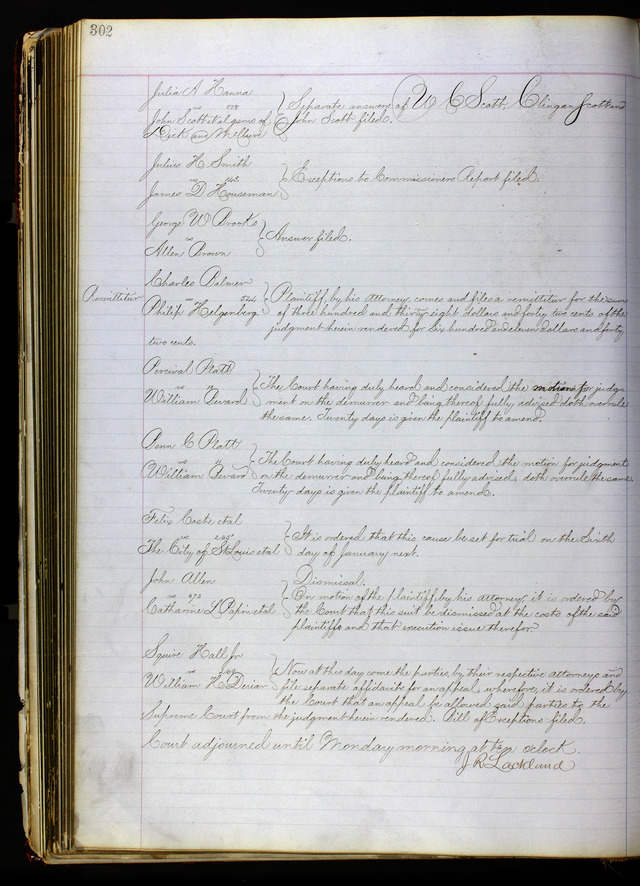 302
Julia A Hanna
vs 558
John Scott et al garns of
Dick an McClure
Separate answers of W C Scott, Clingan Scott and
John Scott filed.
Julius H. Smith
vs 142
James D Houseman
Exceptions to Commissioners Report filed.
George W Brooks
vs
Allen Brown
Answer filed.
Remittitur
Charles Balmer
vs
Philip Helgenberg
Plaintiff, by his attorney, comes and files a remittitur for the sum
of three hundred and thirty eight dollars and forty two cents of the
judgment herein rendered for six hundred and eleven dollars and forty
two cents.
Percival Platt
vs
William Pevard
The Court having duly heard and considered the motion for judg
ment on the demurrer and being thereof fully advised doth overrule
the same. Twenty days is given the plaintiff to amend.
Penn C Platt
vs
William Pevard
The Court having duly heard and considered the motion for judgment
on the demurrer and being thereof fully advised, doth overrule the same.
Twenty days is given the plaintiff to amend.
Felix Coste et al
vs
The City of St Louis et al
It is ordered that this cause be set for trial on the Sixth
day of January next.
John Allen
vs 272
Catharine L Papin et al
Dismissal.
On motion of the plaintiff by his attorney it is ordered by
the Court that this suit be dismissed at the costs of the said
plaintiffs and that execution issue therefor.
Squire Hall Jr
vs
William H Deviar
Now at this day come the parties by their respective attorneys and
file separate affidavits for an appeal, wherefore, it is ordered by
the Court that an appeal be allowed said parties to the
Supreme Court from the judgment herein rendered. Bill of Exceptions filed.
Court adjourned until Monday morning at ten oclock.
J R Lackland